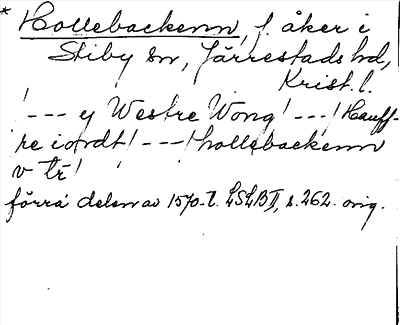 * Hollebackenn, f. åker i
Stiby sn, Järrestads hd,
Krist. l.
! --- y Westre Wong! --- ! Hauff-
re iordt! --- ! hollebackenn
v tr!
förra delen av 1570-t. LSLB II, s. 262. orig.